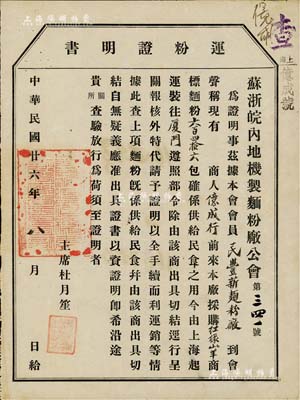 運粉證明書
蘇浙皖內地機製麵粉廠公會
第三四一號
為證明事茲據本會會員民豐新麵粉廠到會
聲稱現有商人億成行前來本廠採購紅綠山羊商
標麵粉 包確係供給民食之用今由上海起
運裝往厦門遵照部令除由該商出具切結逕行呈
關報核外特代請予證明以全手續而利運銷等情
據此查上項麵粉旣係供給民食幷由該商出具切
結自無疑義應准出具證書以資證明卽希沿途
貴關所查驗放行為荷須至證明者
主席杜月笙
中華民國廿六年八月 日給
查
億成號